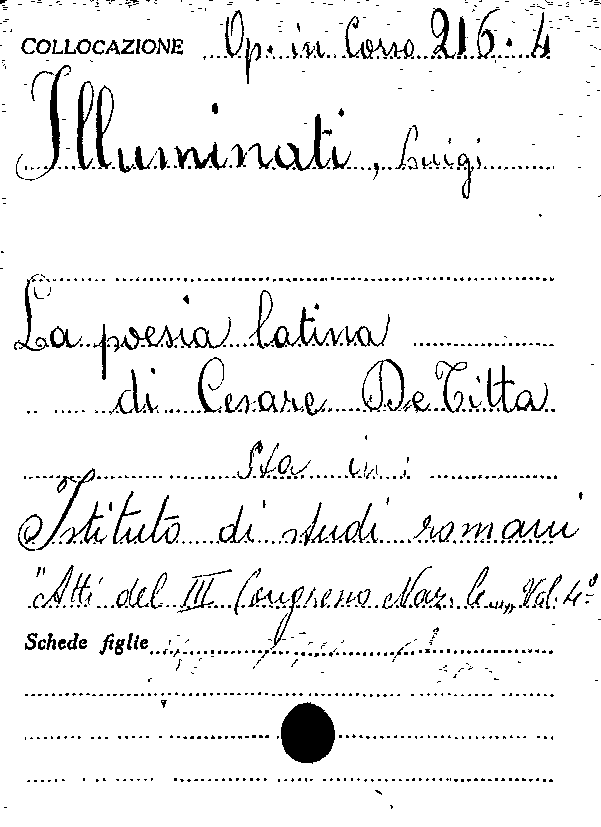 COLLOCAZIONE Op. in Corso 216. 4
Illuminati, Luigi
La poesia latina
di Cesare De Titta
Sta in:
Istituto di studi romani
"Atti del III Congresso Naz.le..." Vol. 4º
Schede figlie